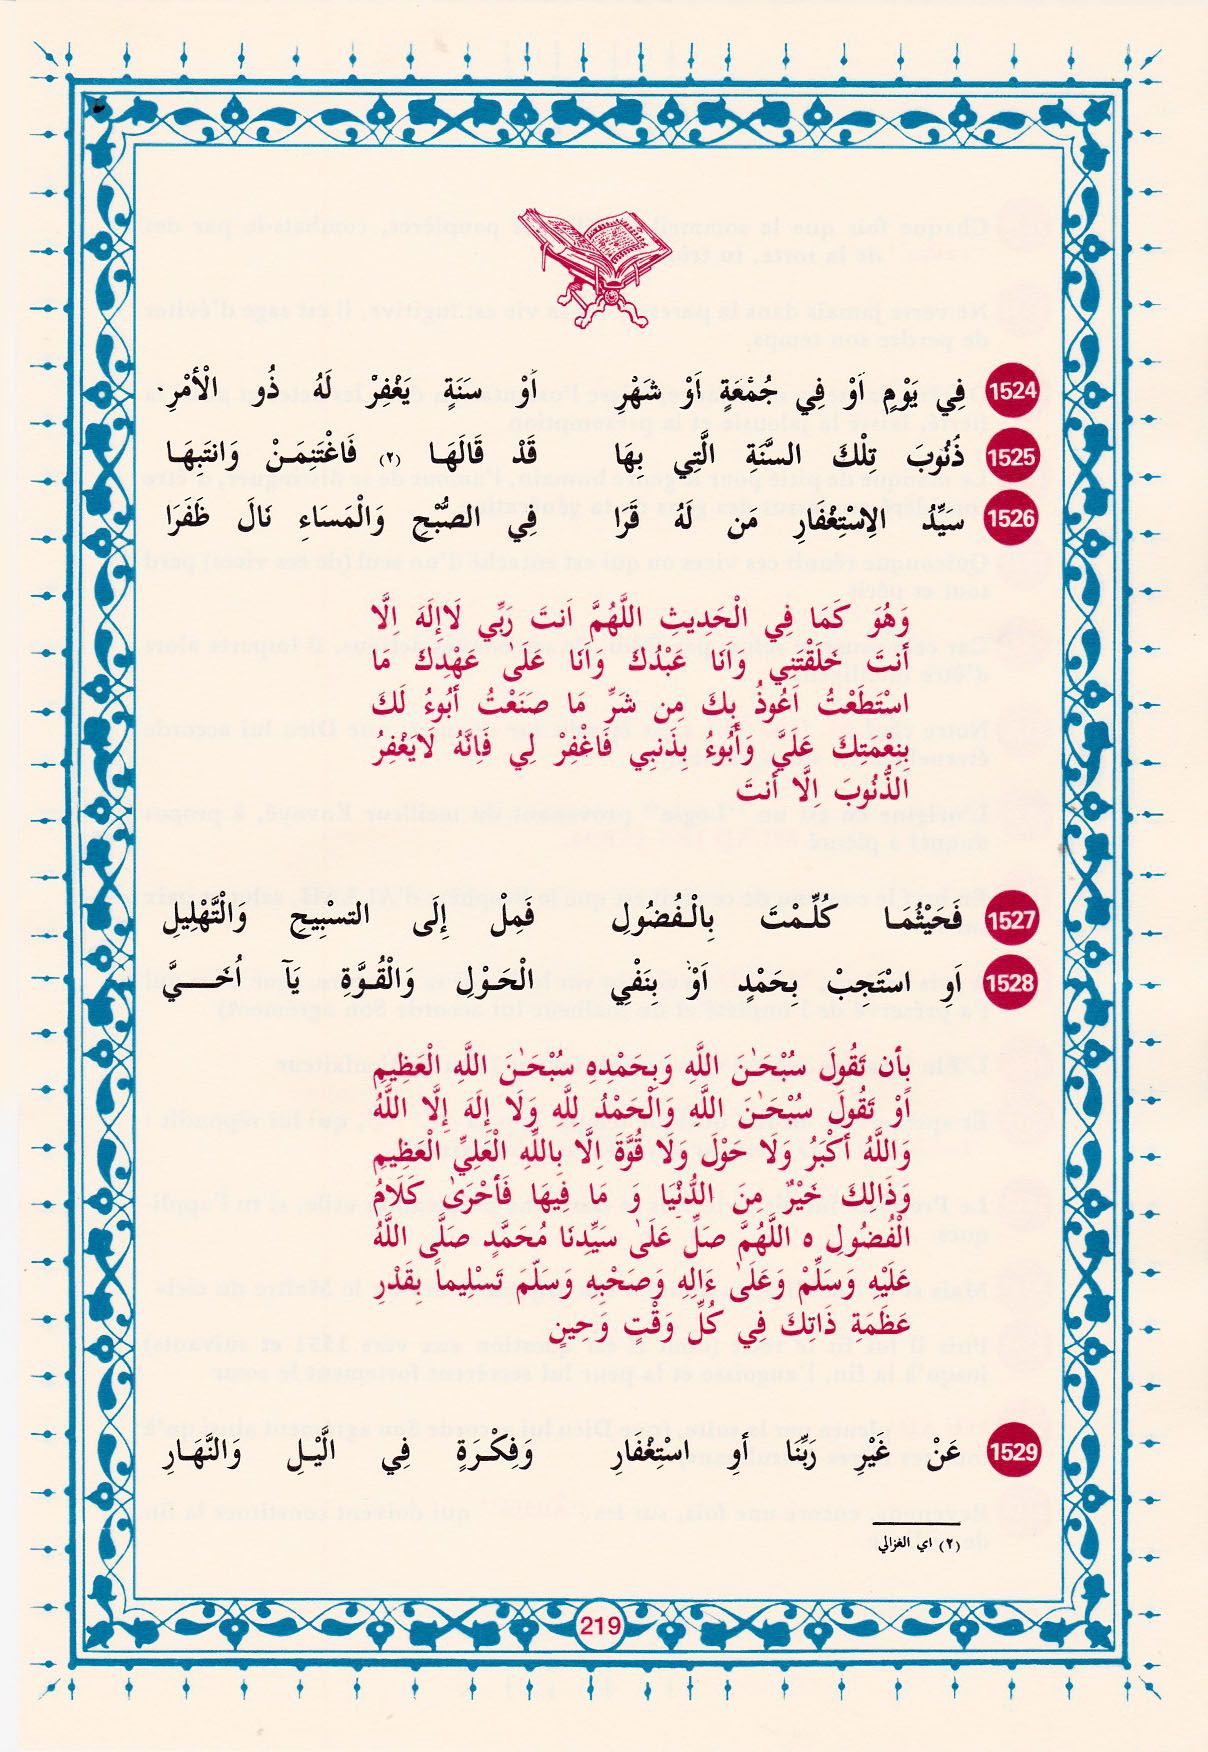 1524 فِي يَوْمٍ اَوْ فِي جُمْعَةٍ اَوْ شَهْرِ اَوْ سَنَةٍ يَغْفِرْ لَهُ ذُو الْأَمْرِ
1525 ذُنُوبَ تِلْكَ السَّنَةِ الَّتِي بِهَا قَدْ قَالَهَا (٢) فَاغْتَنِمَنْ وَانتَبِهَا
1526 سَيِّدُ الِاسْتِغْفَارِ مَن لَهُ قَرَا فِي الصُّبْحِ وَالْمَسَاءِ نَالَ ظَفَرَا
وَهُوَ كَمَا فِي الْحَدِيثِ اللَّهُمَّ اَنتَ رَبِّي لَاإِلَهَ اِلَّا
أَنتَ خَلَقْتَنِي وَاَنَا عَبْدُكَ وَاَنَا عَلَىٰ عَهْدِكَ مَا
اسْتَطَعْتُ اَعُوذُ بِكَ مِن شَرِّ مَا صَنَعْتُ أَبُوءُ لَكَ
بِنِعْمَتِكَ عَلَيَّ وَأَبُوءُ بِذَنبِي فَاغْفِرْ لِي فَاِنَّهُ لَايَغْفِرُ
الذُّنُوبَ اِلَّا أَنتَ
1527 فَحَيْثُمَا كُلِّمْتَ بِالْفُضُولِ فَمِلْ إِلَى التسْبِيحِ وَالتَّهْلِيلِ
1528 اَوِ اسْتَجِبْ بِحَمْدٍ اَوْ بِنَفْيِ الْحَوْلِ وَالْقُوَّةِ يَآ اُخَيَّ
بِأَن تَقُولَ سُبْحَٰنَ اللَّهِ وَبِحَمْدِهِ سُبْحَٰنَ اللَّهِ الْعَظِيمِ
اَوْ تَقُولَ سُبْحَٰنَ اللَّهِ وَالْحَمْدُ لِلَّهِ وَلَا إِلَهَ إِلَّا اللَّهُ
وَاللَّهُ أَكْبَرُ وَلَا حَوْلَ وَلَا قُوَّةَ اِلَّا بِاللَّهِ الْعَلِيِّ الْعَظِيمِ
وَذَالِكَ خَيْرٌ مِنَ الدُّنْيَا وَ مَا فِيهَا فَأَحْرَىٰ كَلَامُ
الْفُضُولِ ه اللَّهُمَّ صَلِّ عَلَىٰ سَيِّدِنَا مُحَمَّدٍ صَلَّى اللَّهُ
عَلَيْهِ وَسَلِّمْ وَعَلَىٰ ءَالِهِ وَصَحْبِهِ وَسَلِّمَ تَسْلِيماً بِقَدْرِ
عَظَمَةِ ذَاتِكَ فِي كُلِّ وَقْتٍ وَحِينٍ
1529 عَنْ غَيْرِ رَبِّنَا أَوِ اسْتِغْفارِ وَفِكْرَةٍ فِي الَّيْلِ وَالنَّهَارِ
(٢) اي الغزالي
219